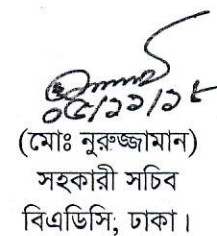 ০৫/১১/১৮
(মোঃ নুরুজ্জামান)
সহকারী সচিব
বিএডিসি, ঢাকা।